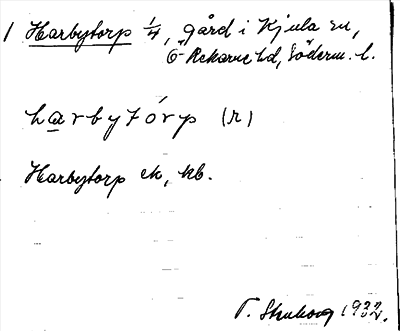 1 Harbytorp 1/4, gård i Kjula sn,
Ö Rekarne hd, Söderm. l.
harbytórp (r)
Harbytorp ek, kb.